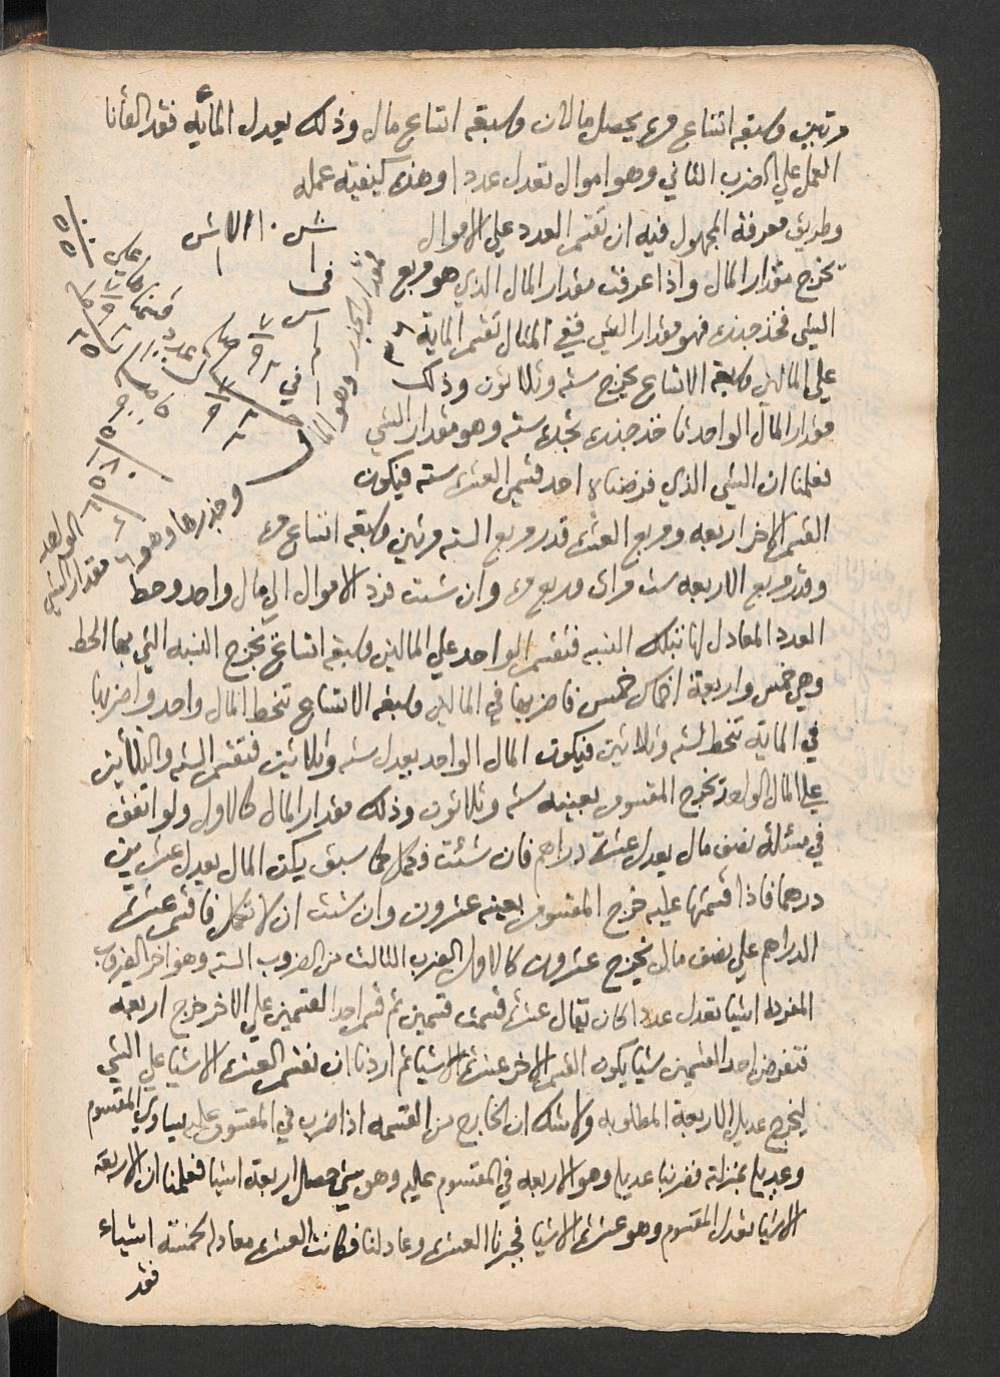 مرتين وسبعة اتساع مره يحصل مالان وسبعة اتساع مال وذلك يعدل المأيه فقد الفأنا
العمل علي الضرب الثاني وهو اموال تعدل عددا وهذه كيفية عمله
وطريق معرفة المجهول فيه ان تقسم العدد علي الاموال
تخرج مقدار المال واذا عرفت مقدار المال الذي هو مربع
الشي فخذ جذره فهو مقدار الشي ففي المثال تقسم الماية
علي المالين وسبعة الاتساع يخرج سته وثلاثون وذلك
مقدار المال الواحد فاخذ جذره تجده سته وهو مقدار الشي
فعلمنا ان الشي الذي فرضناه احد قسمي العشره سته فيكون
القسم الاخر اربعه ومربع العشره قدر مربع السته مرتين وسبعة اتساع مره
وقدر مربع الاربعه ست مرات وربع مره وان شئت فرد الاموال الي مال واحد وحط
العدد المعادل لها بتلك النسبه فتقسم الواحد علي المالين وسبعة اتساع تخرج النسبه التي بها الحط
وهي خمس واربعة اخماس خمس فاضربها في المالين وسبعة الاتساع تنحط لمال واحد واضربها
في الماية تنحط لسته وثلاثين فيكون المال الواحد يعدل سته وثلاثين فتقسم السته والثلاثين
علي المال الواحد تخرج المقسوم بعينه سته وثلاثون وذلك مقدار المال كالاول ولو اتفق
في مسئلة نصف مال يعدل عشرة دراهم فان شئت فكمل كما سبق يكن المال يعدل عشرين
درهما فاذا قسمتها عليه خرج المقسوم بعينه عشرون وان شئت ان لا تكمل فاقسم عشرة
الدراهم علي نصف مال يخرج عشرون كالاول الضرب الثالث من الضروب السته وهو اخر الضروب
المفرده اشيا تعدل عددا كان يقال عشرة قسمت قسمين ثم قسم احد القسمين علي الاخر خرج اربعه
فتفرض احد القسمين شيا يكون القسم الاخر عشرة الا شيا ثم اردنا ان نقسم العشره الا شيا علي الشي
ليخرج عديل الاربعة المطلوبه ولا شك ان الخارج من القسمه اذا ضرب في المقسوم عليه يساوي المقسوم
وعديله بمنزلته فضربنا عديله وهو الاربعه في المقسوم عليه وهو شي حصل اربعة اشيا فعلمنا ان الاربعة
الاشيا تعدل المقسوم وهو عشرة الا شيا فجبرنا العشره وعادلنا فكانت العشره معادلة لخمسة اشياء
فقد
وجذرها وهو ٦ مقدار الشي